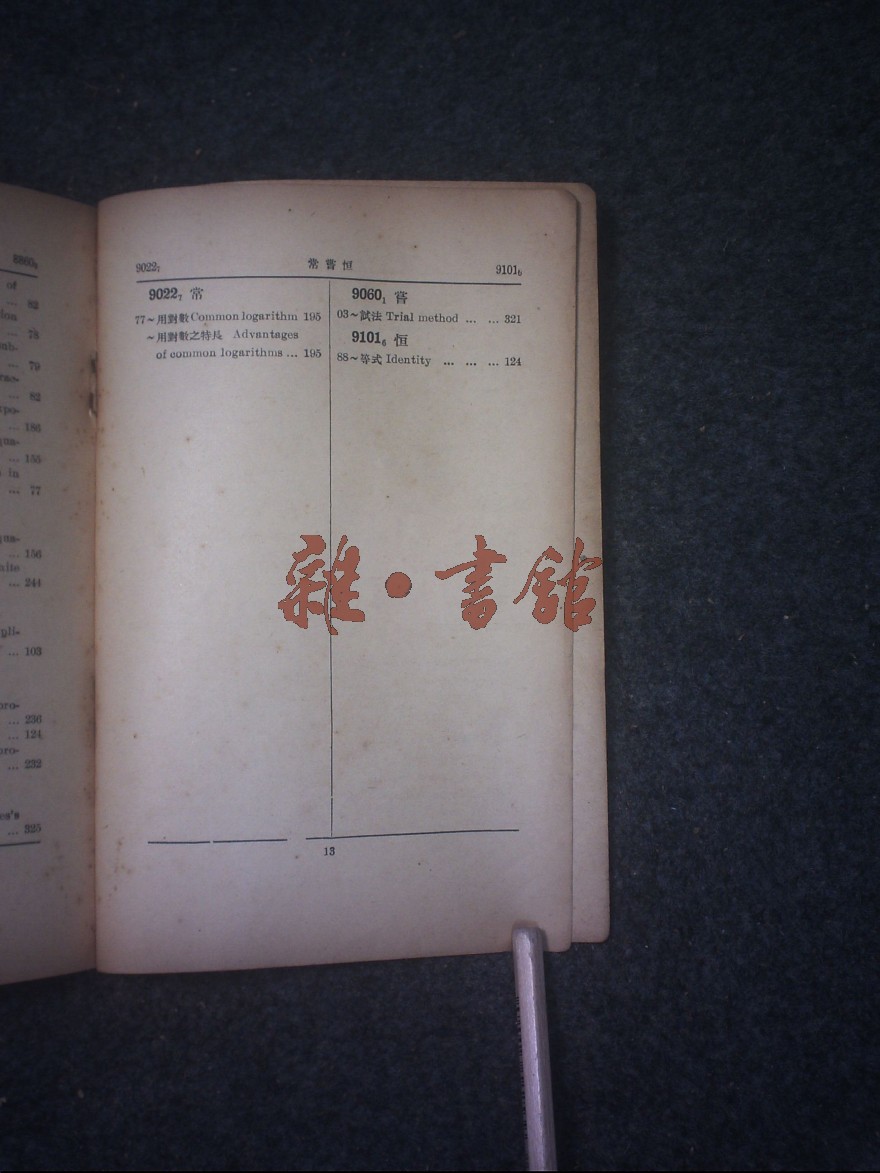 8860₄
of
... 82
... 78
... 79
... 82
... 186
... 155
in
... 77
... 156
... 244
... 103
... 236
... 124
... 232
... 325
9022₇ 常嘗恒 9101₆
9022₇ 常
77~用對數 Common logarithm 195
~用對數之特長 Advantages
of common logarithms ... 195
9060₁ 嘗
03~試法 Trial method ... ... 321
9101₆ 恒
88~等式 Identity ... ... ... 124
雜·書館
13